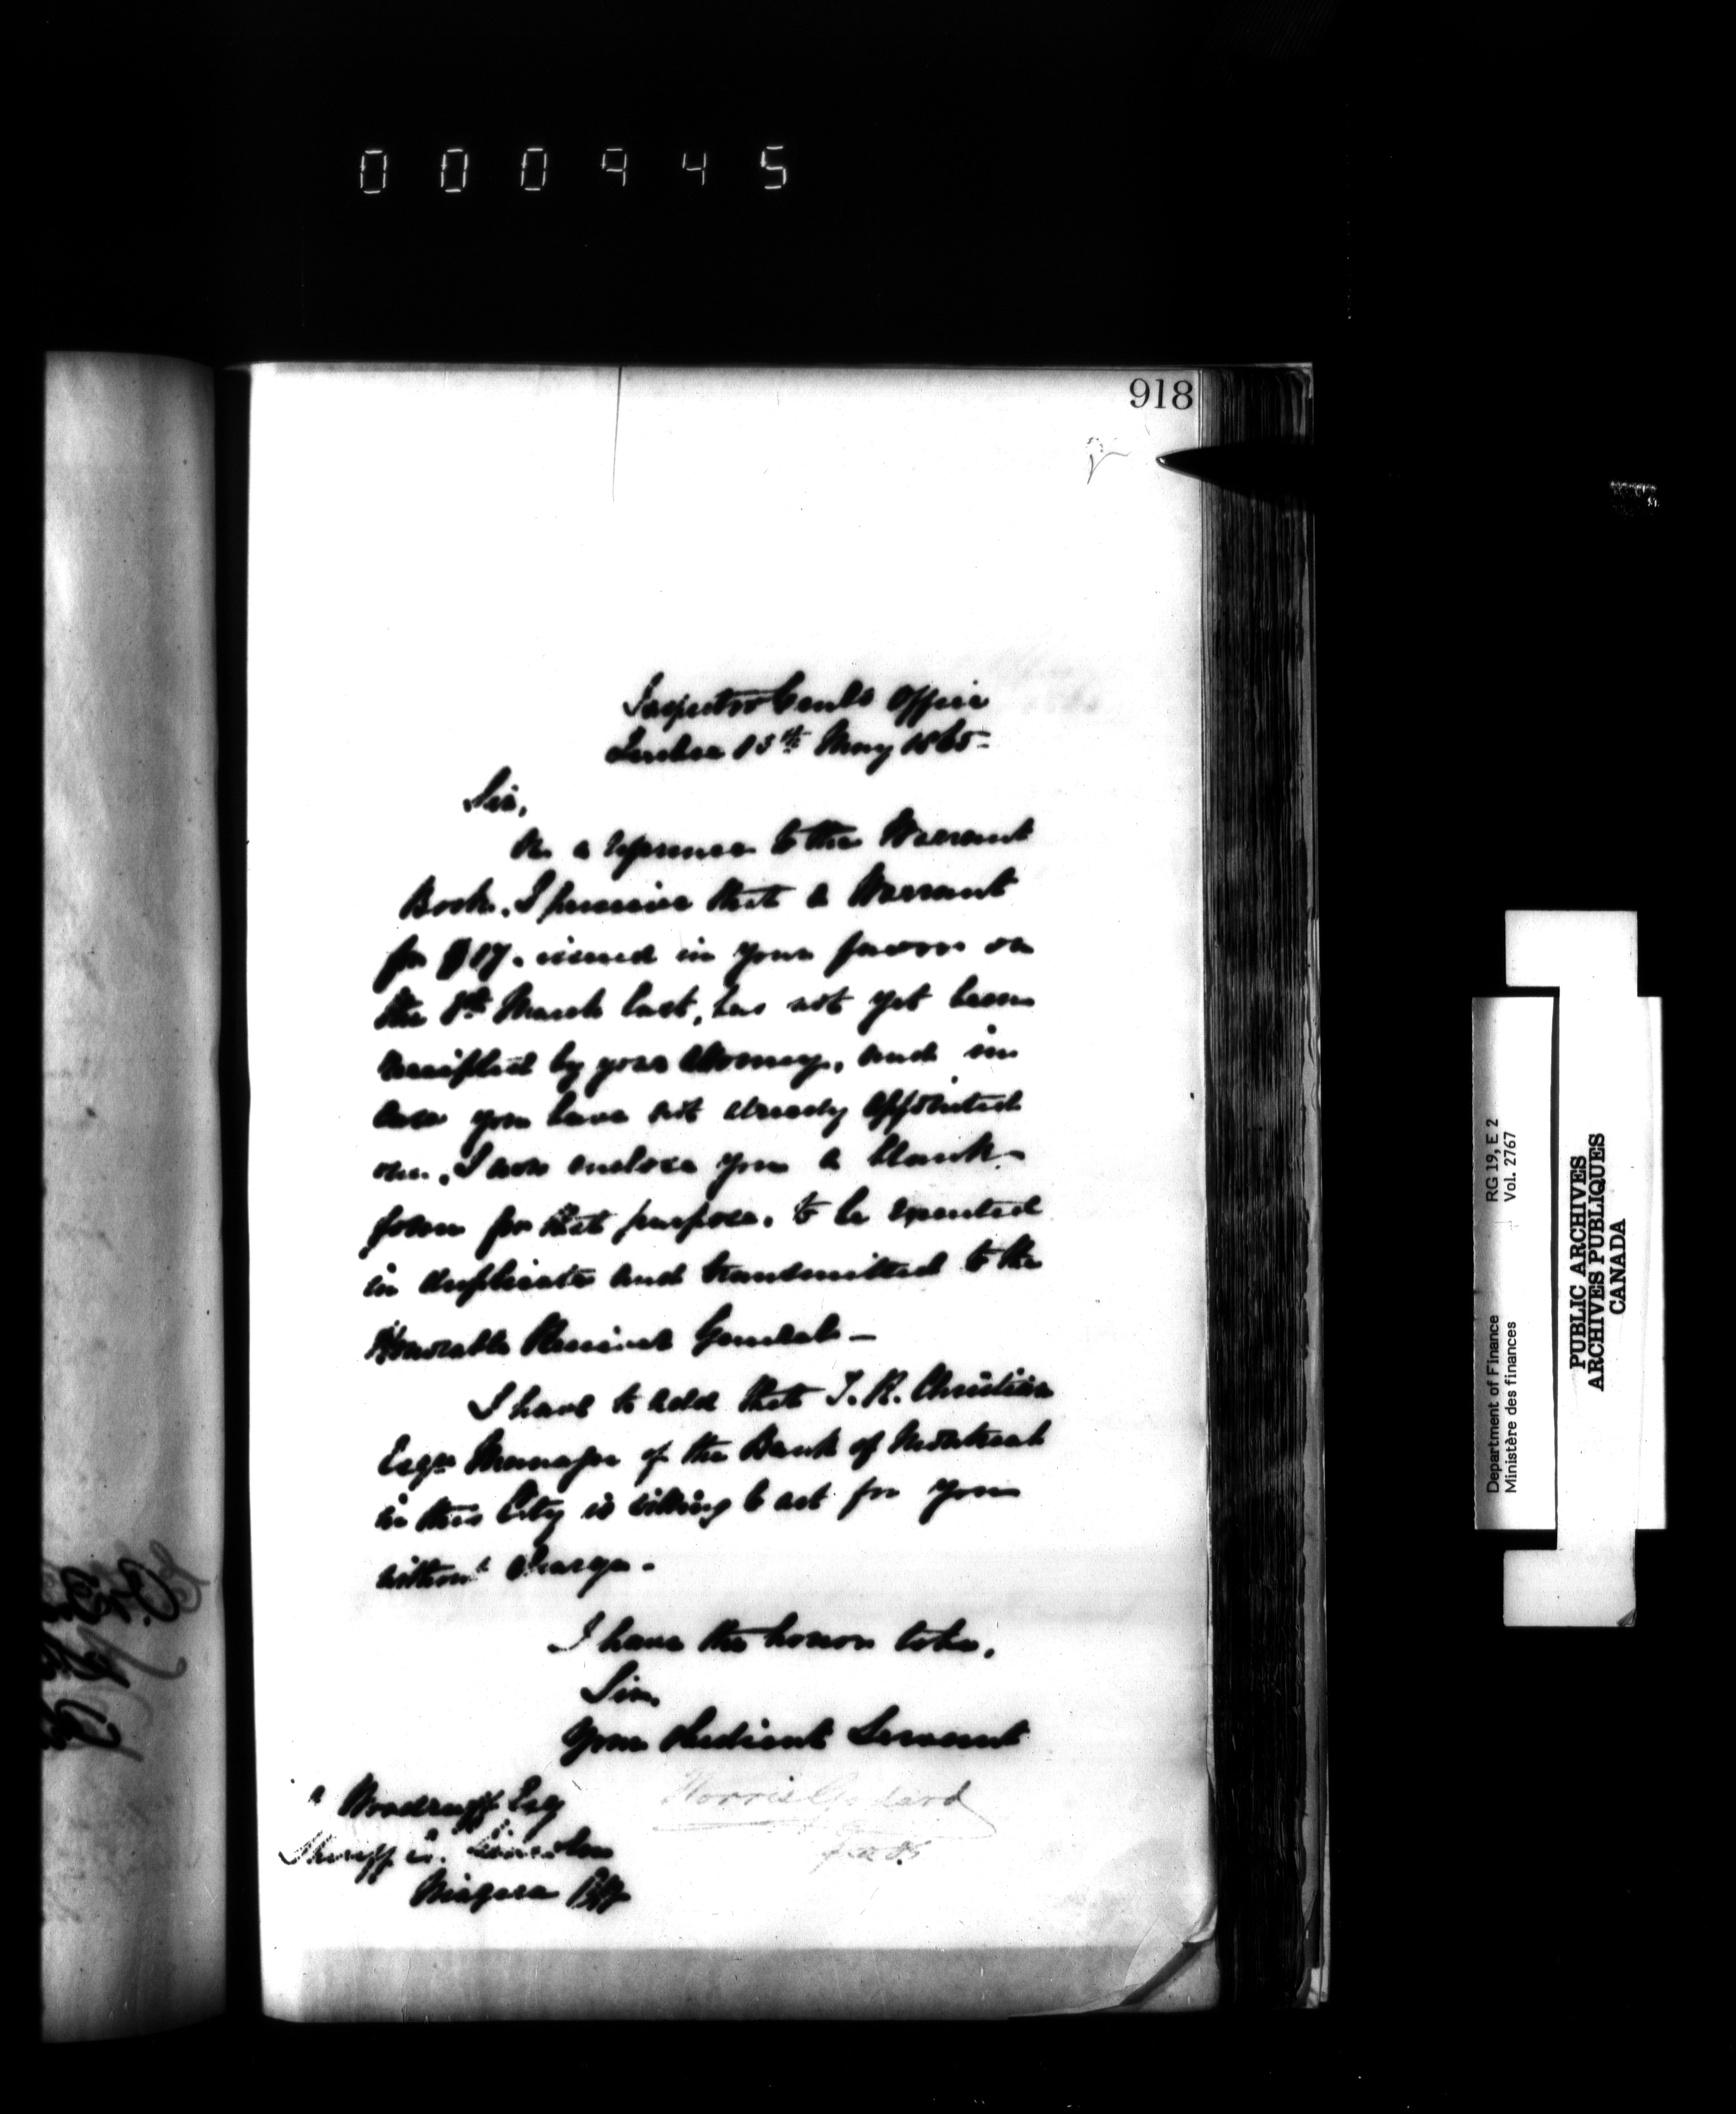 000945
918
Inspector Genls Office
Quebec 13th May 1865
Sir,
On a reference to the Warrant
Book, I perceive that a Warrant
for $17. issued in your favor on
the 8th March last, has not yet been
receipted by your Attorney, and in
case you have not already appointed
one, I now enclose you a blank
form for that purpose, to be executed
in duplicate and transmitted to the
Honorable Receiver General –
I have to add that T. R. Christian
Esqre Manager of the Bank of Montreal
in this City is willing to act for you
without charge.
I have the honor to be,
Sir,
Your Obedient Servant
Woodruff Esq
Sheriff
Niagara
Department of Finance RG 19, E 2
Ministère des finances Vol. 2767
PUBLIC ARCHIVES
ARCHIVES PUBLIQUES
CANADA